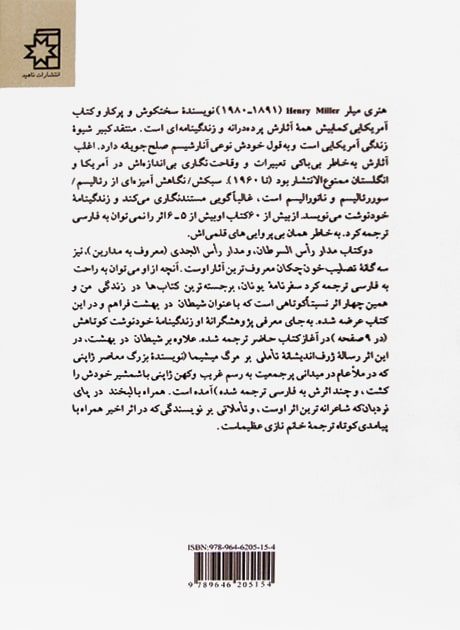 انتشارات ناهید
هنری میلر Henry Miller (۱۸۹۱ـ۱۹۸۰) نویسندهٔ سختکوش و پرکار و کتاب
آمریکایی کمابیش همهٔ آثارش پرده‌درانه و زندگینامه‌ای است. منتقد کبیر شیوهٔ
زندگی آمریکایی است و به‌قول خودش نوعی آنارشیسم صلح‌جویانه دارد. اغلب
آثارش به‌خاطر بی‌باکی تعبیرات و وقاحت‌نگاری بی‌اندازه‌اش در آمریکا و
انگلستان ممنوع‌الانتشار بود (تا ۱۹۶۰). سبکش/نگاهش آمیزه‌ای از رئالیسم/
سوررئالیسم و ناتورالیسم است، غالباً گویی مستندنگاری می‌کند و زندگینامهٔ
خودنوشت می‌نویسد. از بیش از ۶۰ کتاب او بیش از ۵ـ۶ اثر را نمی‌توان به فارسی
ترجمه کرد. به خاطر همان بی‌پروایی‌های قلمی‌اش.
دو کتاب مدار رأس السرطان، و مدار رأس الجدی (معروف به مدارین)، نیز
سه گانهٔ تصلیب خون‌چکان معروف‌ترین آثار اوست. آنچه از او می‌توان به راحت
به فارسی ترجمه کرد سفرنامهٔ یونان، برجسته‌ترین کتاب‌ها در زندگی من و
همین چهار اثر نسبتاً کوتاهی است که با عنوان شیطان در بهشت فراهم و در این
کتاب عرضه شده. به‌جای معرفی پژوهشگرانهٔ او زندگینامهٔ خودنوشت کوتاهش
(در ۹ صفحه) در آغاز کتاب حاضر ترجمه شده. علاوه بر شیطان در بهشت، در
این اثر رسالهٔ ژرف‌اندیشانهٔ تأملی بر مرگ میشیما (نویسندهٔ بزرگ معاصر ژاپنی
که در ملأ عام در میدانی پرجمعیت به رسم غریب و کهن ژاپنی با شمشیر خودش را
کشت، و چند اثرش به فارسی ترجمه شده) آمده است. همراه با لبخند در پای
نردبان که شاعرانه‌ترین اثر اوست، و تأملاتی بر نویسندگی که در اثر اخیر همراه با
پیامدی کوتاه ترجمهٔ خانم نازی عظیماست.
ISBN:978-964-6205-15-4
9789646205154